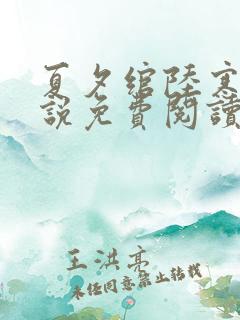 夏夕綰陸寒
說免費閱讀
王洪亮
未经同意禁止转载